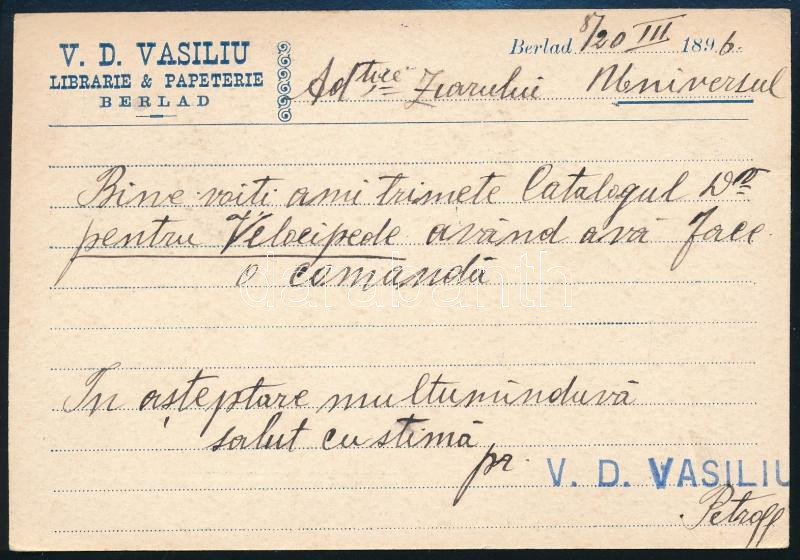 V. D. VASILIU
LIBRARIE & PAPETERIE
BERLAD
Berlad 8/20 III 1896.
Adtiei Ziarului Universul
Bine-voiti ami trimete Catalogul D-v
pentru Velocipede avênd avă face
o comandă
In așteptare multuminduvă
salut cu stimă
pr. V. D. VASILIU
Petroff
darabanth